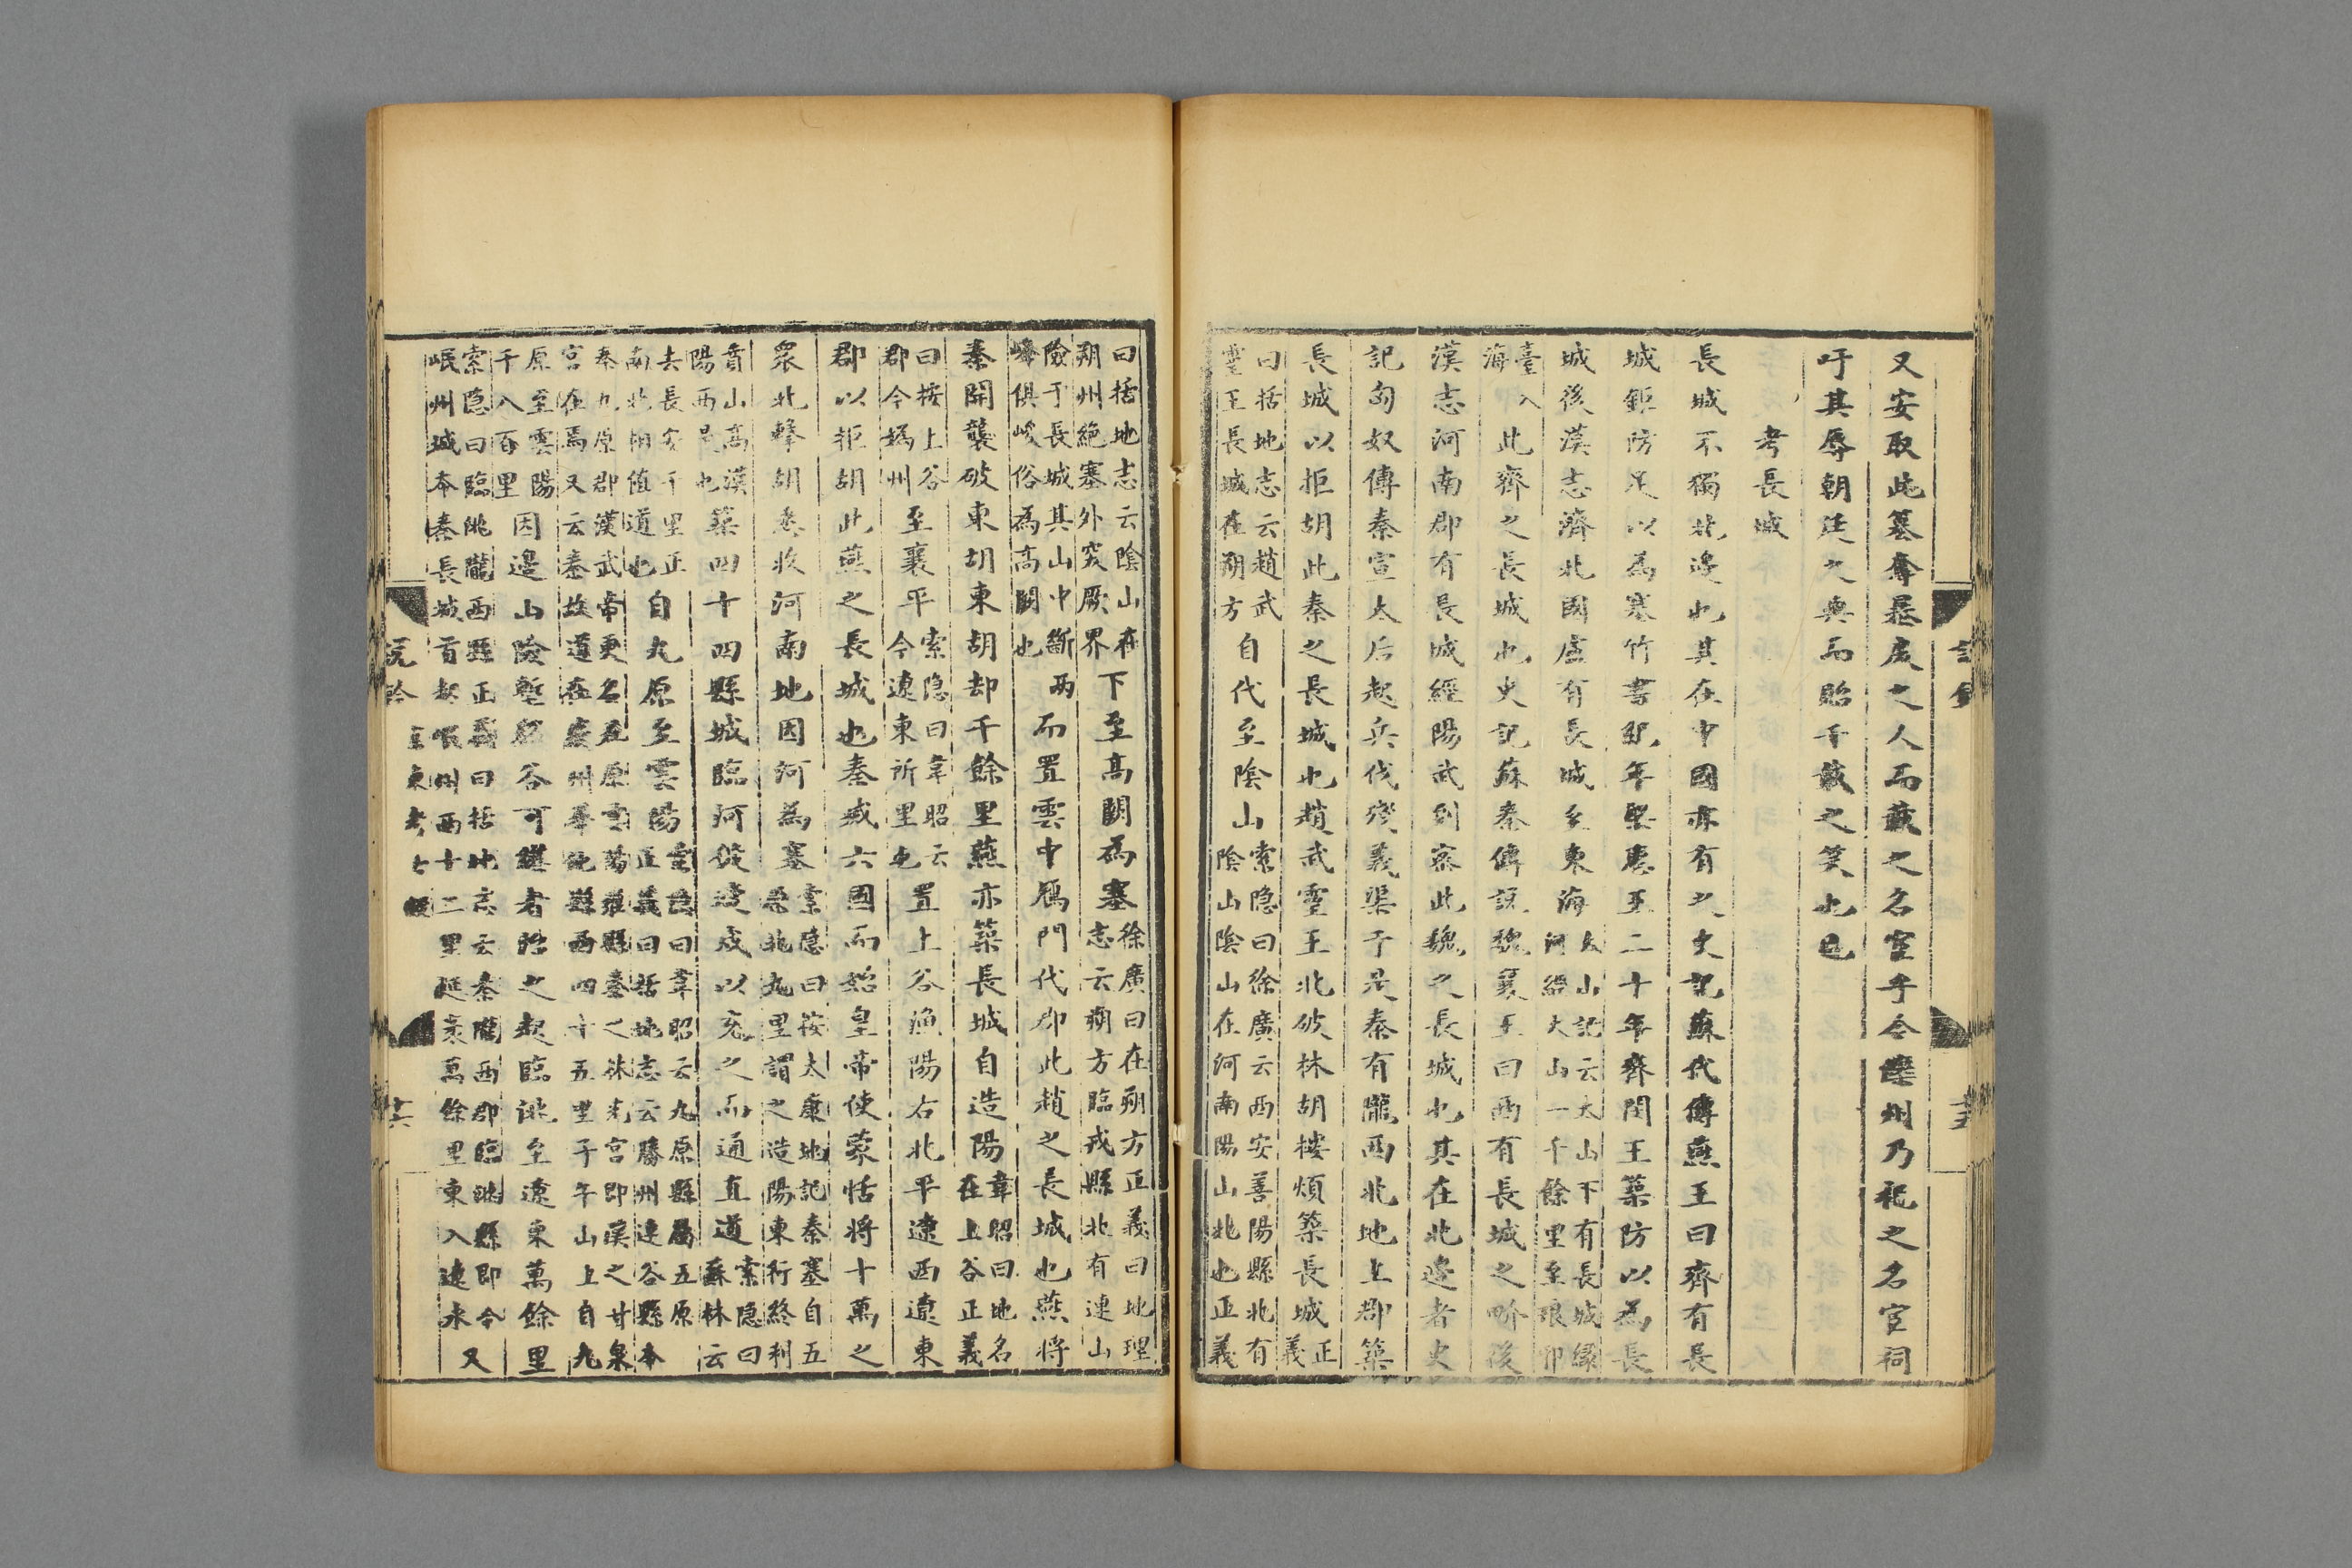 又安取此墓奪暴戾之人而載之名宦乎今欒州乃祀之名宦祠
吁其辱朝廷之典而貽千載之笑也已
考長城
長城不獨北邊也其在中國亦有之史記蘇代傳燕王曰齊有長
城鉅防足以為塞竹書紀年梁惠王二十年齊閔王築防以為長
城後漢志濟北國盧有長城至東海太山記云太山下有長城緣河經太山一千餘里至琅邪
臺入海此齊之長城也史記蘇秦傳說魏襄王曰西有長城之界後
漢志河南郡有長城經陽武到密此魏之長城也其在北邊者史
記匈奴傳秦宣太后起兵伐殘義渠于是秦有隴西北地上郡築
長城以拒胡此秦之長城也趙武靈王北破林胡樓煩築長城正義
曰括地志云趙武靈王長城在朔方自代至陰山索隱曰徐廣云西安善陽縣北有陰山陰山在河南陽山北也正義
曰括地志云陰山在朔州絶塞外突厥界下至高闕為塞徐廣曰在朔方正義曰地理志云朔方臨戎縣北有連山
險于長城其山中斷兩峰俱峻俗為高闕也而置雲中鴈門代郡此趙之長城也燕將
秦開襲破東胡東胡却千餘里燕亦築長城自造陽韋昭曰地名在上谷正義
曰按上谷郡今媯州至襄平索隱曰韋昭云今遼東所里也置上谷漁陽右北平遼西遼東
郡以拒胡此燕之長城也秦滅六國而始皇帝使蒙恬將十萬之
衆北擊胡悉收河南地因河為塞索隱曰按太康地記秦塞自五原北九里謂之造陽東行終利
賁山高漢陽西是也築四十四縣城臨河徙適戍以充之而通直道索隱曰蘇林云
去長安千里正南北相值道也自九原至雲陽索隱曰韋昭云九原縣屬五原正義曰括地志云勝州連谷縣本
秦九原郡漢武帝更名五原雲陽雍縣秦之林光宮即漢之甘泉宮在焉又云秦故道在慶州華池縣西四十五里子午山上自九
原至雲陽千八百里因邊山險塹谿谷可繕者治之起臨洮至遼東萬餘里
索隱曰臨洮隴西縣正義曰括地志云秦隴西郡臨洮縣即今岷州城本秦長城首起岷州西十二里延袤萬餘里東入遼水又